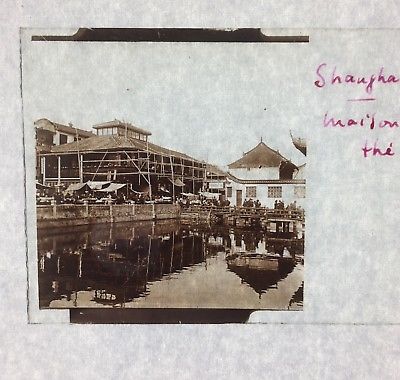 Shangha
maison
thé